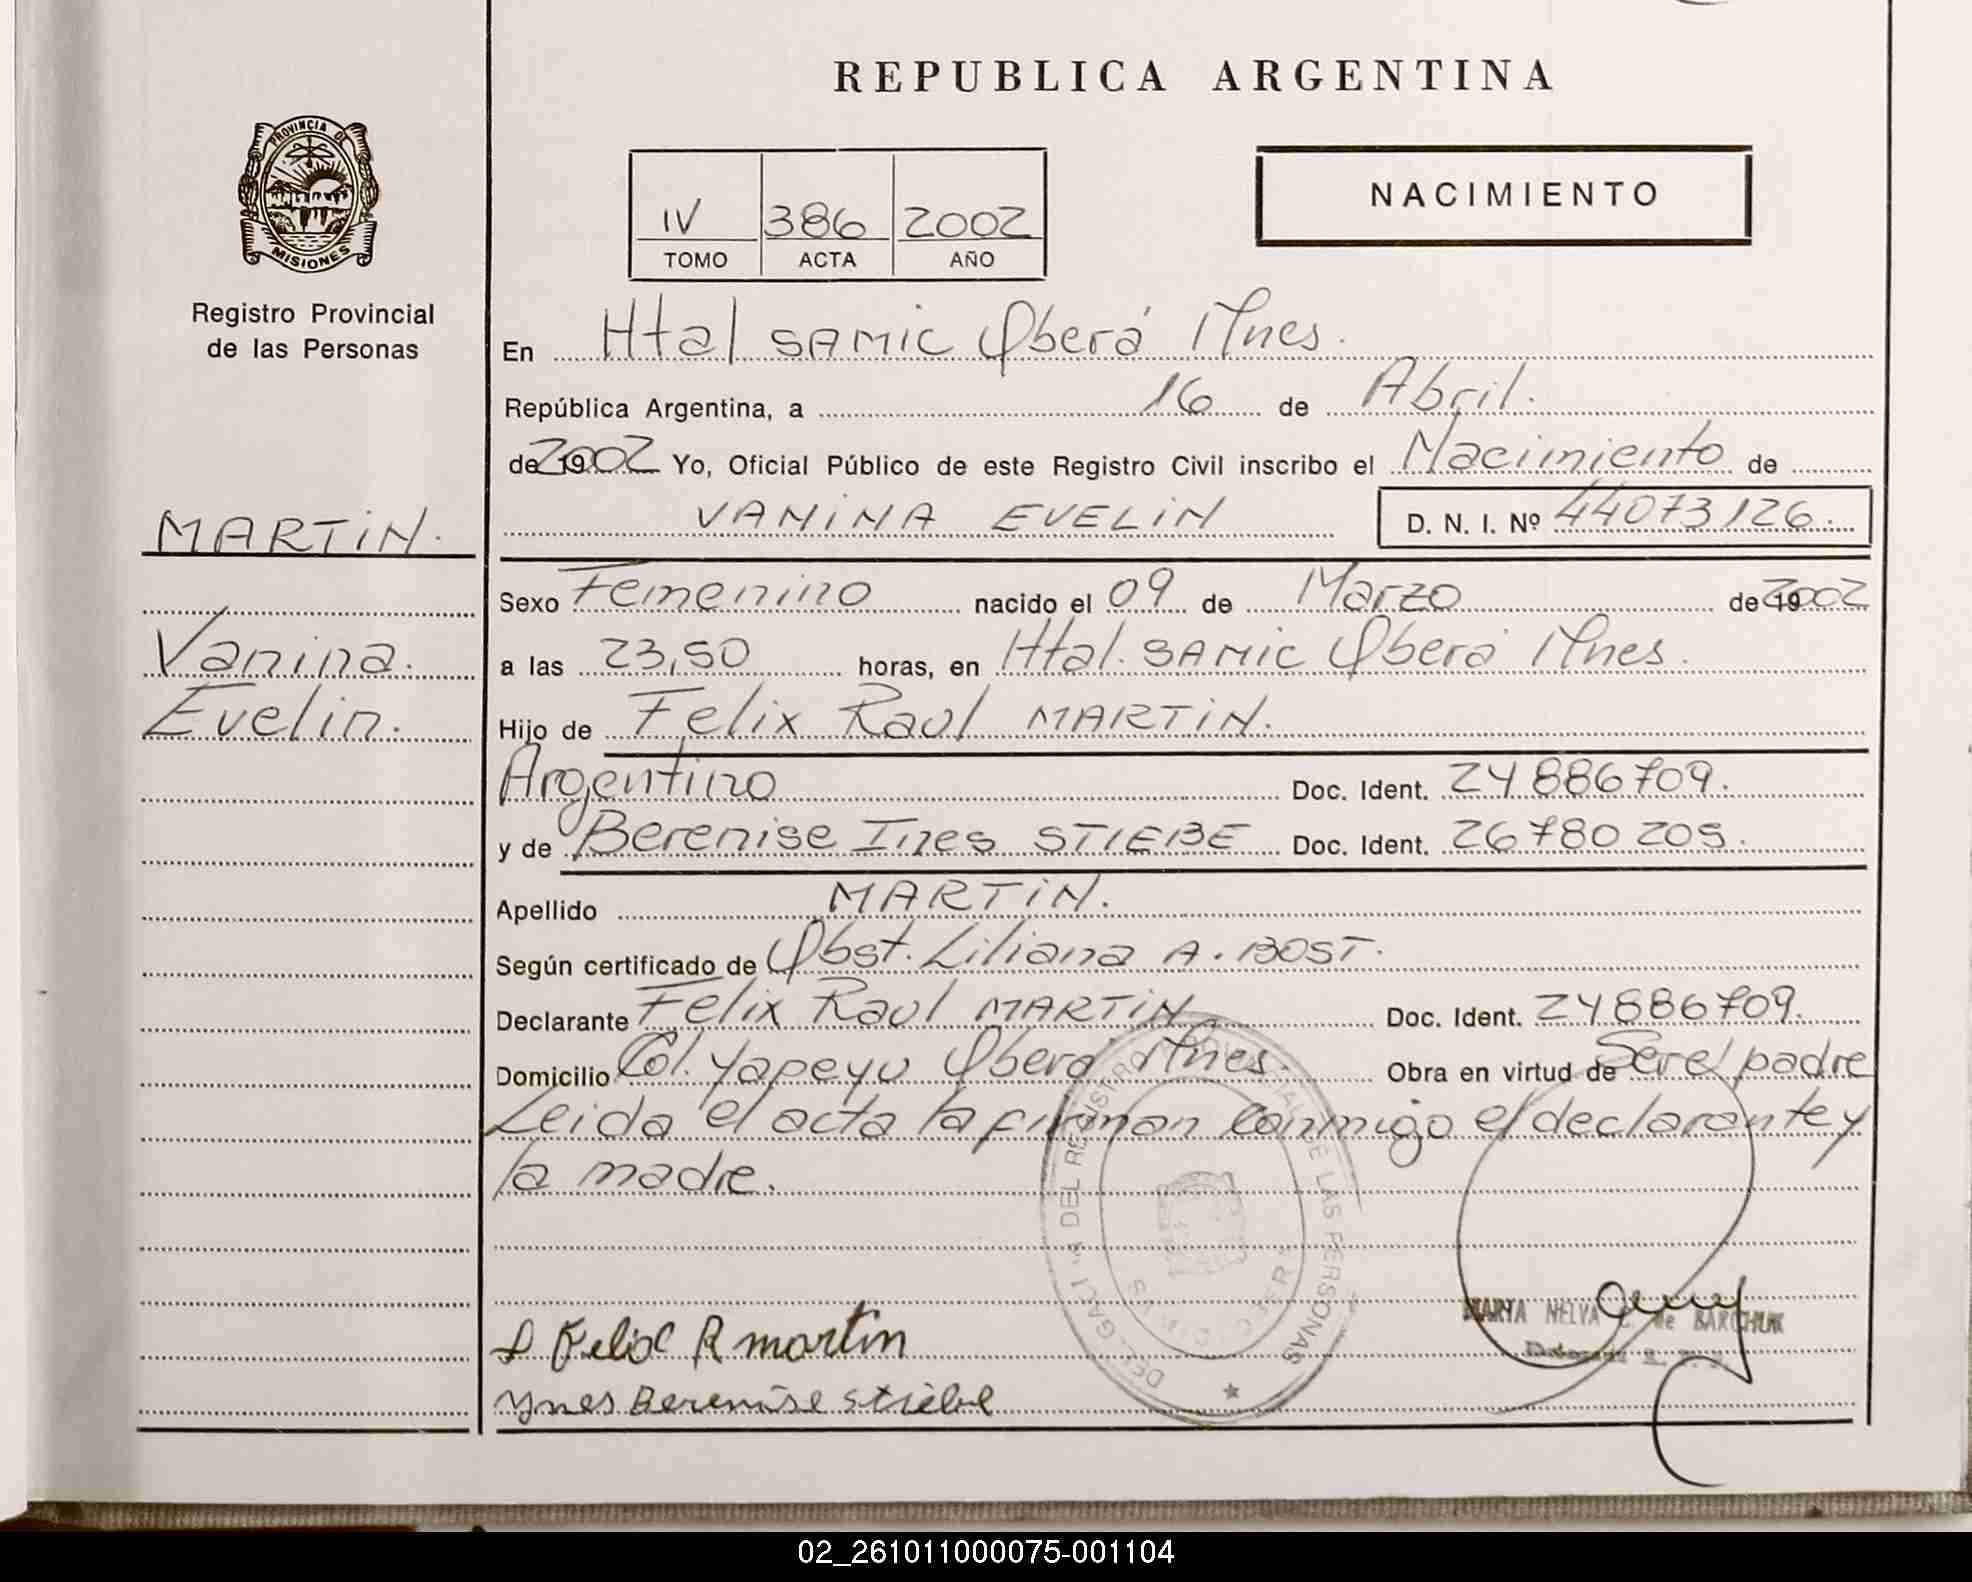 REPUBLICA ARGENTINA
PROVINCIA DE
MISIONES
Registro Provincial
de las Personas
IV 386 2002
TOMO ACTA AÑO
NACIMIENTO
En Htal SAMIC Oberá Mnes.
República Argentina, a 16 de Abril.
de 2002 Yo, Oficial Público de este Registro Civil inscribo el Nacimiento de
VANINA EVELIN D. N. I. Nº 44073126.
MARTIN.
Vanina.
Evelin.
Sexo Femenino nacido el 09 de Marzo de 2002
a las 23,50 horas, en Htal. SAMIC Oberá Mnes.
Hijo de Felix Raul MARTIN.
Argentino Doc. Ident. 24886709.
y de Berenise Ines STIEBE Doc. Ident. 26780205.
Apellido MARTIN.
Según certificado de Obst. Liliana A. BOST.
Declarante Felix Raul MARTIN Doc. Ident. 24886709.
Domicilio Col. Yapeyu Oberá Mnes. Obra en virtud de Ser el padre
Leida el acta la firman conmigo el declarante y
la madre.
DEL REGISTRO PROVINCIAL DE LAS PERSONAS
Felix R martin
Ynes Berenise Stiebe
MARTA NELVA C. de BARCHUK
02_261011000075-001104